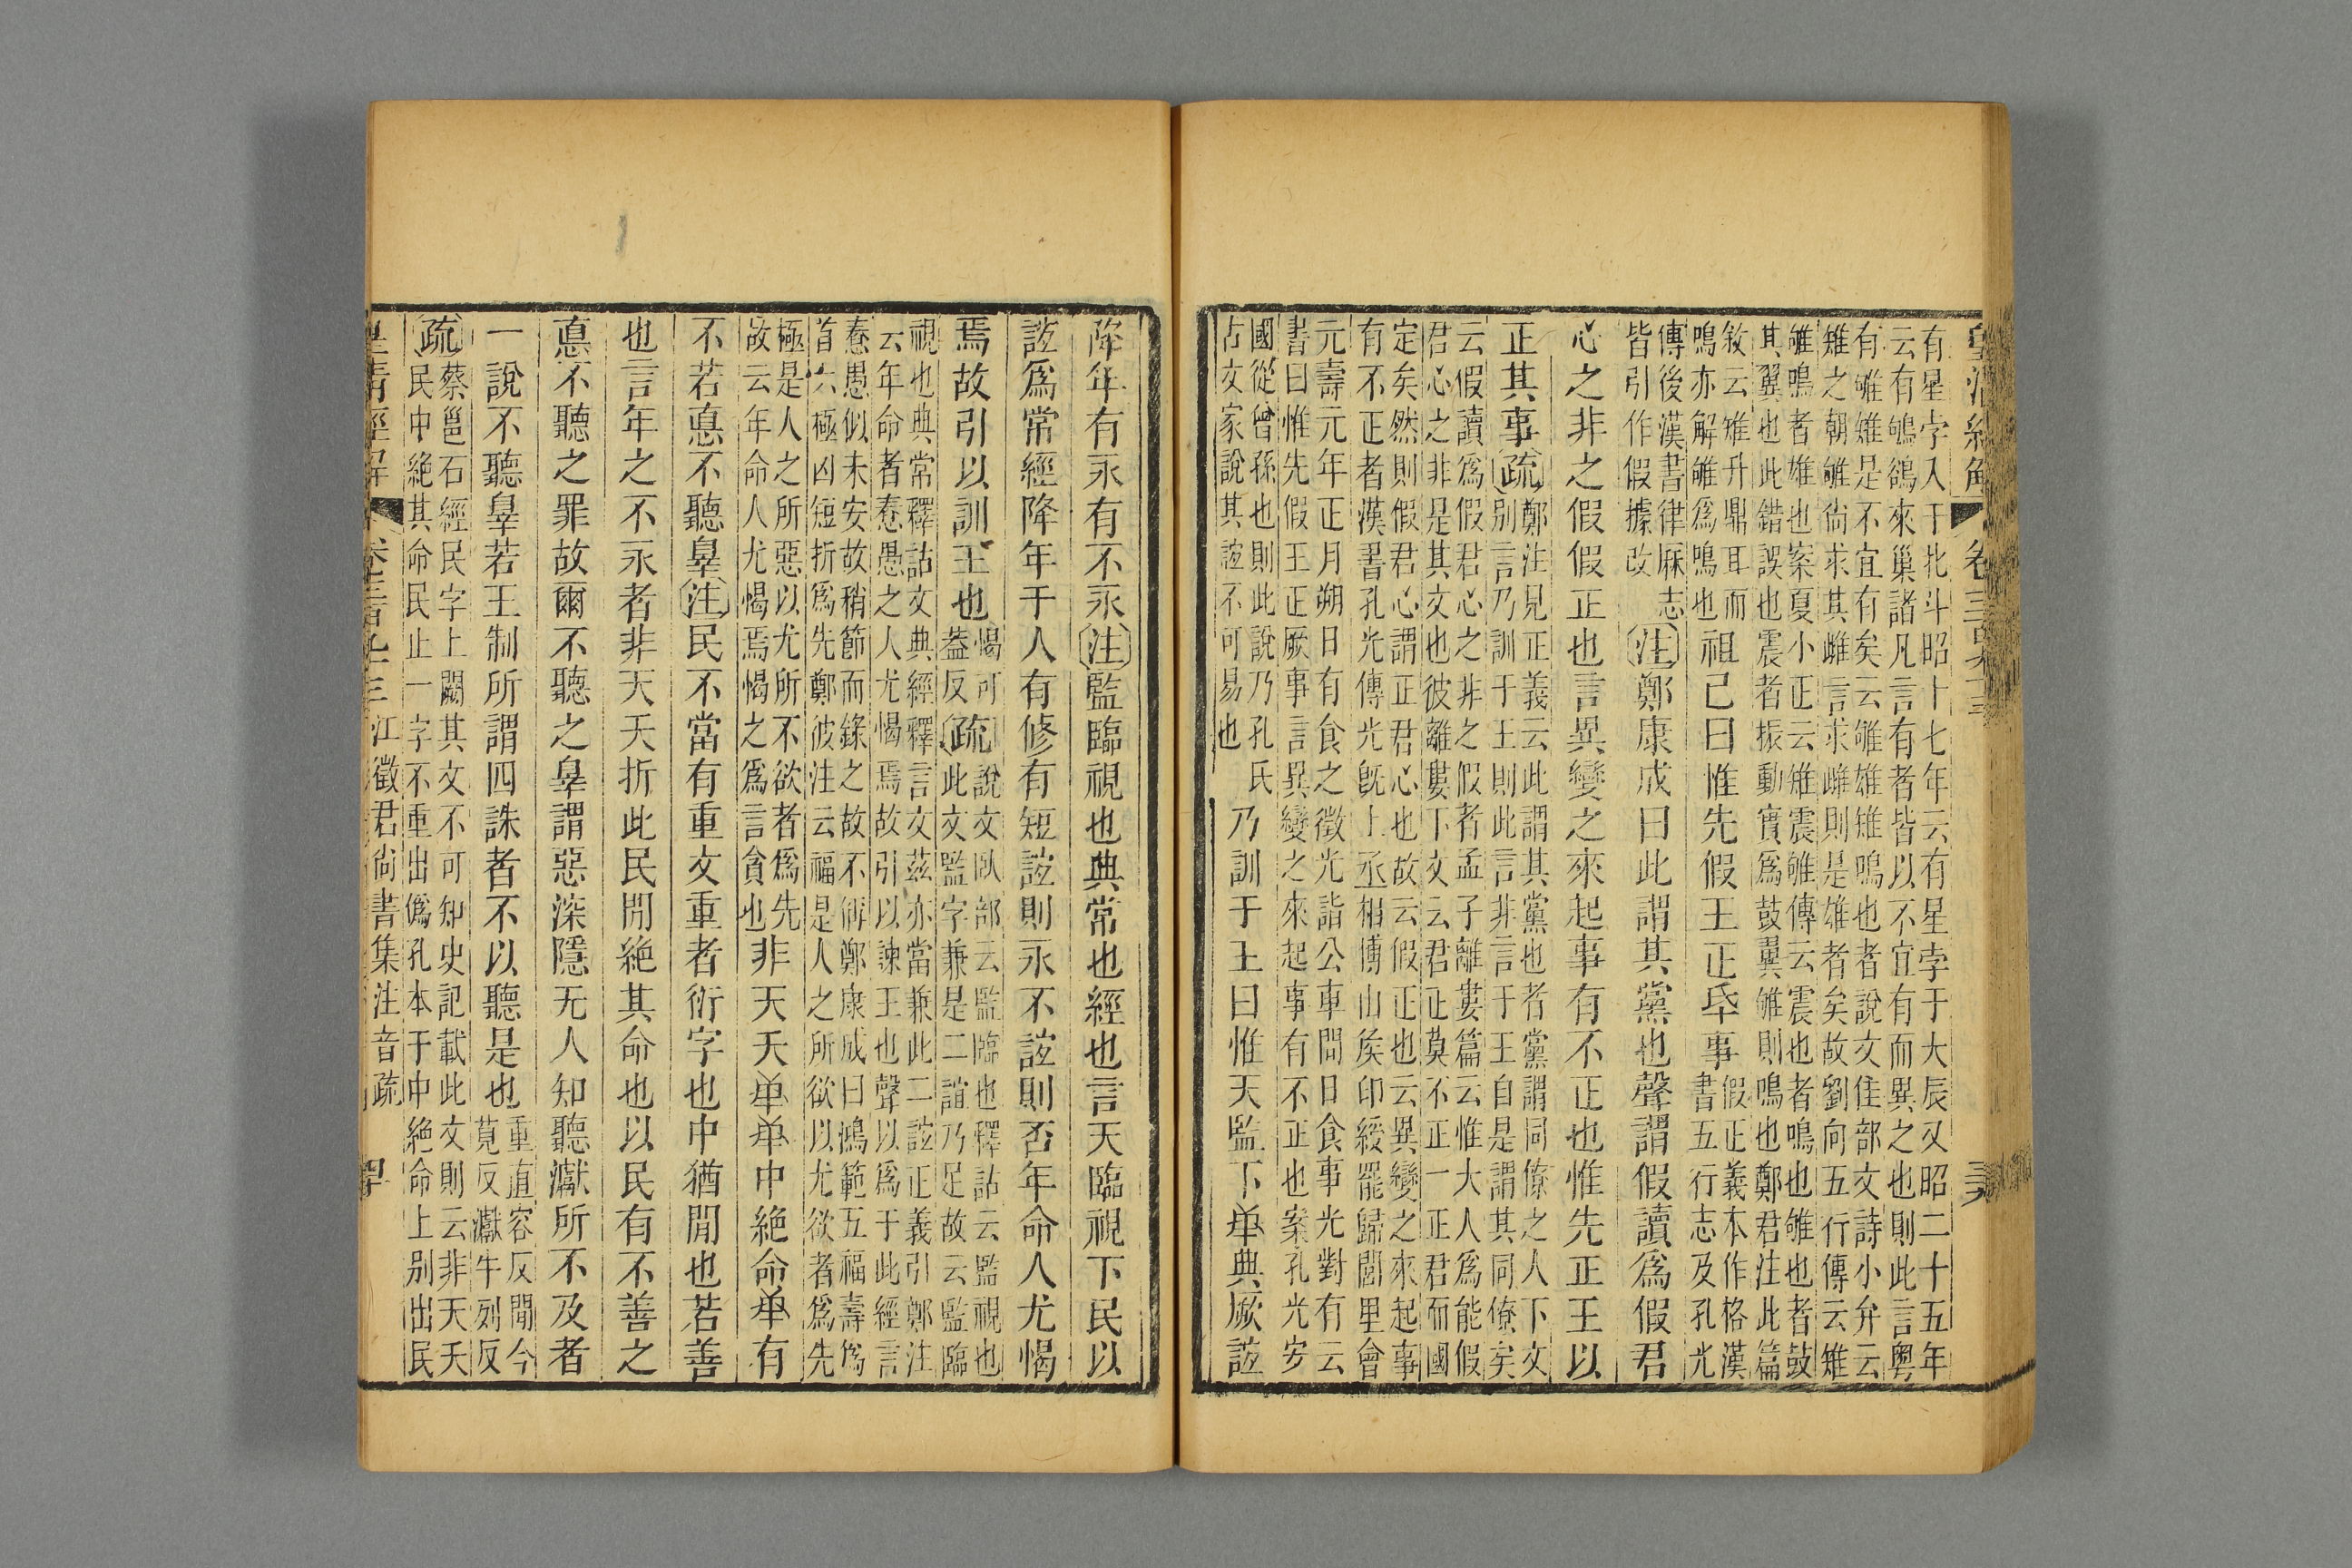 有星孛入于北斗昭十七年云有星孛于大辰又昭二十五年
云有鴝鵒來巢諸凡言有者皆以不宜有而異之也則此言粵
有雊雉是不宜有矣云雊雄雉鳴也者說文隹部文詩小弁云
雉之朝雊尙求其雌言求雌則是雄者矣故劉向五行傳云雉
雊鳴者雄也案夏小正云雉震雊傳云震也者鳴也雊也者鼓
其翼也此錯誤也震者振動實爲鼓翼雊則鳴也鄭君注此篇
敘云雉升鼎耳而
鳴亦解雊爲鳴也
祖己曰惟先假王正𠂹事
假正義本作格漢
書五行志及孔光
傳後漢書律厤志
皆引作假據改
注鄭康成曰此謂其黨也聲謂假讀爲假君
心之非之假假正也言異變之來起事有不正也惟先正王以
正其事疏
鄭注見正義云此謂其黨也者黨謂同僚之人下文
別言乃訓于王則此言非言于王自是謂其同僚矣
云假讀爲假君心之非之假者孟子離婁篇云惟大人爲能假
君心之非是其文也彼離婁下文云君正莫不正一正君而國
定矣然則假君心謂正君心也故云假正也云異變之來起事
有不正者漢書孔光傳光旣上丞相博山矦印綬罷歸閭里會
元壽元年正月朔日有食之徵光詣公車問日食事光對有云
書曰惟先假王正厥事言異變之來起事有不正也案孔光安
國從曾孫也則此說乃孔氏
古文家說其誼不可易也
乃訓于王曰惟天監下单典厥誼
降年有永有不永注監臨視也典常也經也言天臨視下民以
誼爲常經降年于人有修有短誼則永不誼則否年命人尤愒
焉故引以訓王也
愒可
葢反
疏
說文臥部云監臨也釋詁云監視也
此文監字兼是二誼乃足故云監臨
視也典常釋詁文典經釋言文茲亦當兼此二誼正義引鄭注
云年命者惷愚之人尤愒焉故引以諫王也聲以爲于此經言
惷愚似未安故稍節而錄之故不偁鄭康成曰鴻範五福壽爲
首六極凶短折爲先鄭彼注云福是人之所欲以尤欲者爲先
極是人之所惡以尤所不欲者爲先
故云年命人尤愒焉愒之爲言貪也
非天夭单单中絶命单有
不若悳不聽辠注民不當有重文重者衍字也中猶閒也若善
也言年之不永者非天夭折此民閒絶其命也以民有不善之
悳不聽之罪故爾不聽之辠謂惡深隱无人知聽讞所不及者
一說不聽辠若王制所謂四誅者不以聽是也
重直容反閒今
莧反讞牛列反
疏
蔡邕石經民字上闕其文不可知史記載此文則云非天夭
民中絶其命民止一字不重出僞孔本于中絶命上别出民
皇清經解
卷三百九十三
江徵君尙書集注音疏